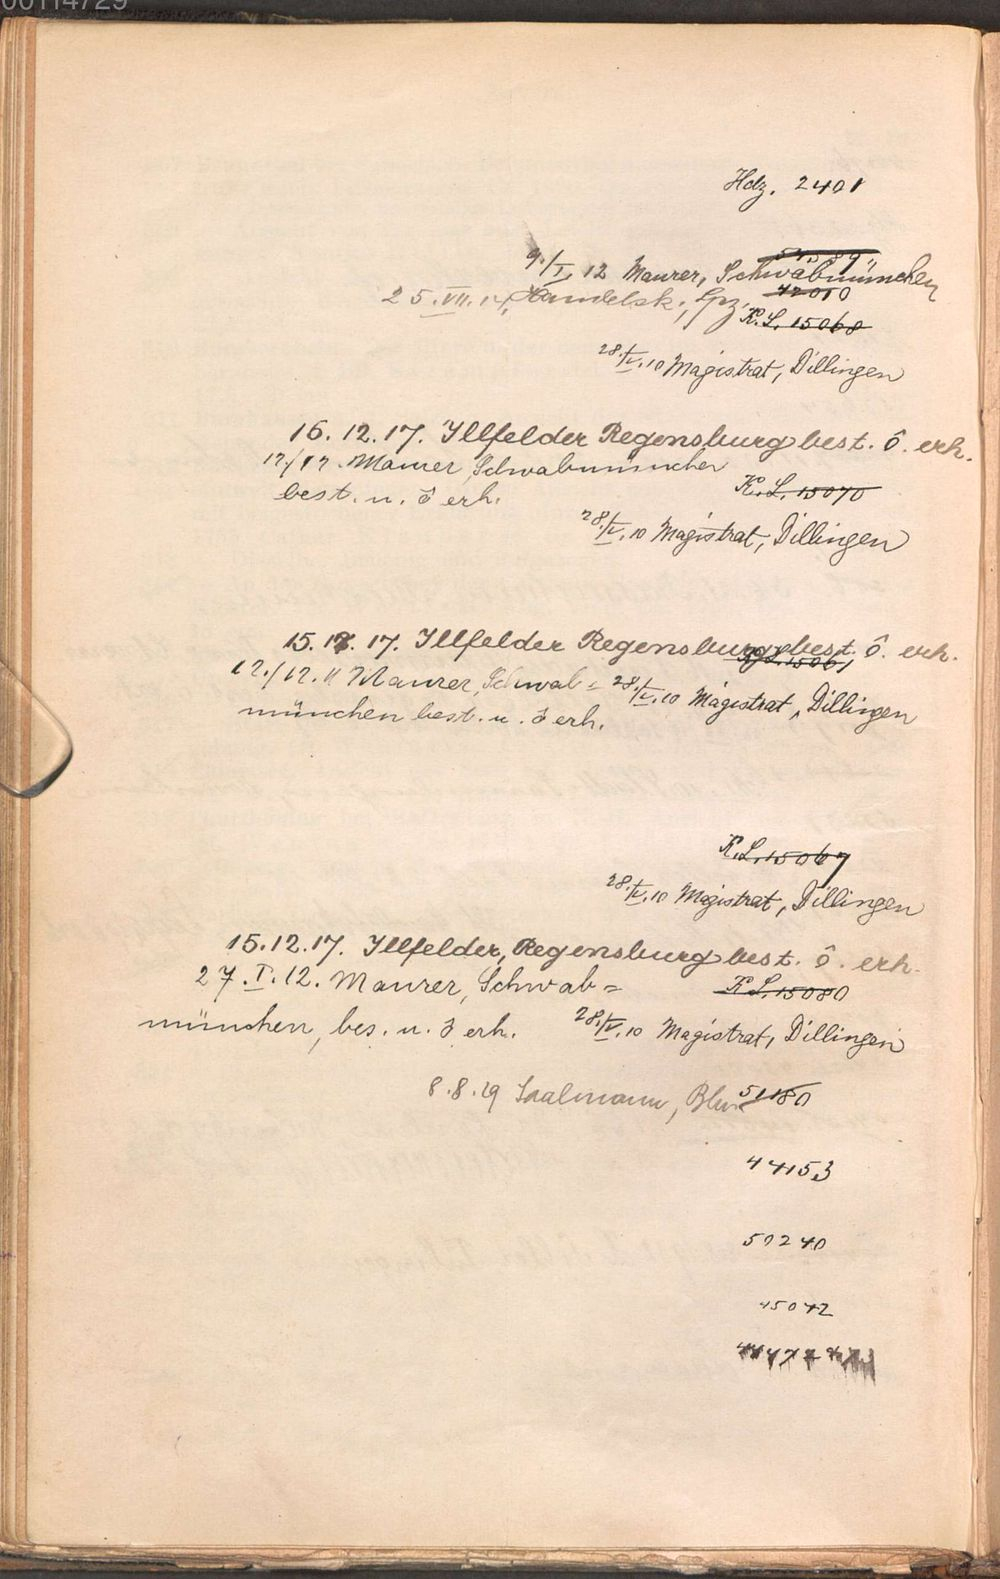 00114729
Hdz. 2401
54589
9/I. 12 Maurer, Schwabmünchen
42010
25.VII.14, Handelsk., Lpz.
K.L. 15068
28./V.10 Magistrat, Dillingen
16.12.17. Illfelder Regensburg best. ô. erh.
12/12. Maurer Schwabmünchen
K.L. 15070
best. u. ô erh.
28./V.10 Magistrat, Dillingen
15.12.17. Illfelder Regensburg best. ô. erh.
K.L. 15061
12./12.11 Maurer, Schwab=
28./V.10 Magistrat, Dillingen
münchen best. u. ô erh.
K.L. 15067
28./V.10 Magistrat, Dillingen
15.12.17. Illfelder, Regensburg best. ô. erh.
27.I.12. Maurer, Schwab=
K.L. 15080
münchen, bes. u. ô erh.
28./V.10 Magistrat, Dillingen
8.8.29 Saalmann, Bln
51180
44153
50240
45042